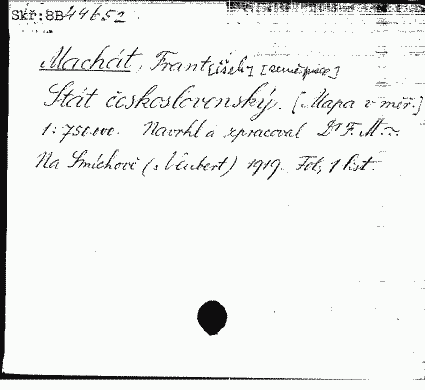 Skř: 8B 44652
Machát, Frant[išek] [zeměpisec]
Stát československý. [Mapa v měř.]
1:750.000. Navrhl a zpracoval Dr F. M.
Na Smíchově (: Neubert) 1919. Fol, 1 list.